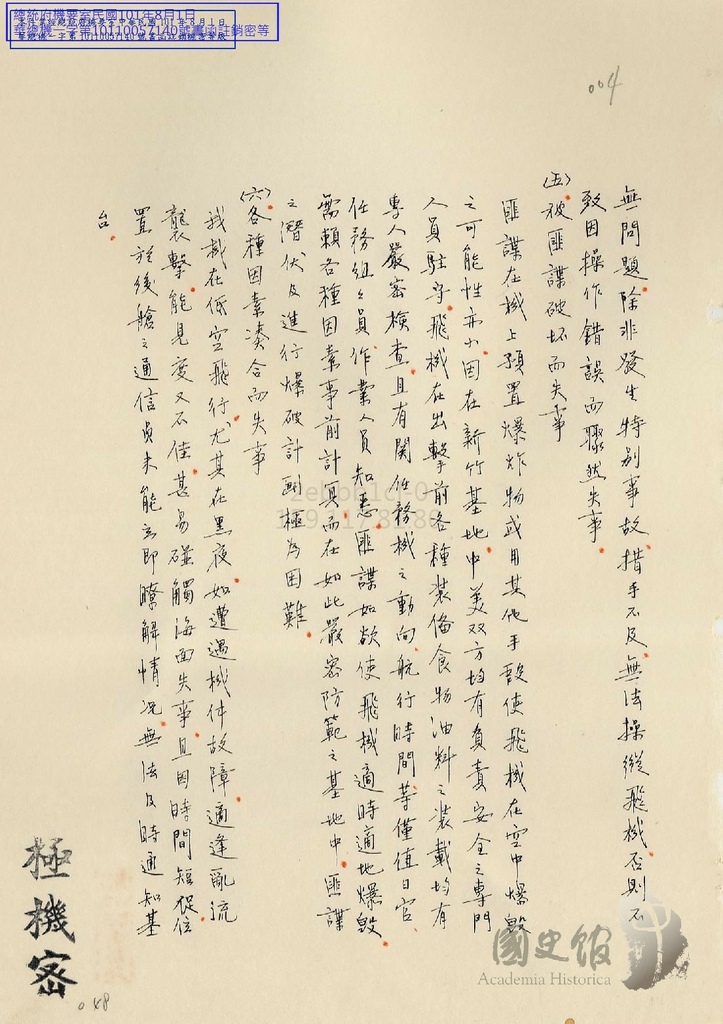 總統府機要室民國101年8月1日
華總機一字第10110057140號書函註銷密等
004
無問題除非發生特別事故措手不及無法操縱飛機否則不
致因操作錯誤而驟然失事
(五)被匪諜破坏而失事
匪諜在機上預置爆炸物或用其他手段使飛機在空中爆毀
之可能性亦小因在新竹基地中美双方均有負責安全之專門
人員駐守飛機在出擊前各種裝備食物油料之裝載均有
專人嚴密檢查且有關任務機之動向航行時間等僅值日官
任務組々員作業人員知悉匪諜如欲使飛機適時適地爆毀
需賴各種因素事前計算而在如此嚴密防範之基地中匪諜
之潛伏及進行爆破計劃極為困難
(六)各種因素湊合而失事
我機在低空飛行尤其在黑夜如遭遇機件故障適逢亂流
襲擊能見度又不佳甚易碰觸海面失事且因時間短促位
置於後艙之通信員未能立即瞭解情况無法及時通知基
台
極機密
048
國史館
Academia Historica